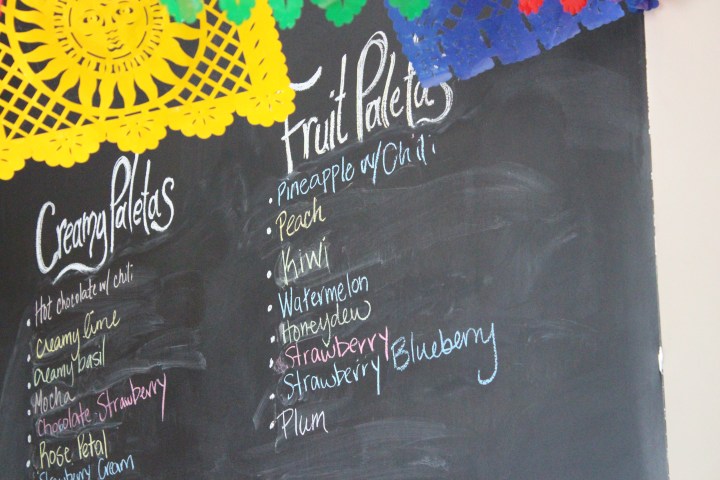 Creamy Paletas
Hot chocolate w/ chili
creamy lime
creamy basil
Mocha
Chocolate Strawberry
Rose Petal
Strawberry Cream
Fruit Paletas
Pineapple w/ Chili
Peach
Kiwi
Watermelon
Honeydew
Strawberry
Strawberry Blueberry
Plum